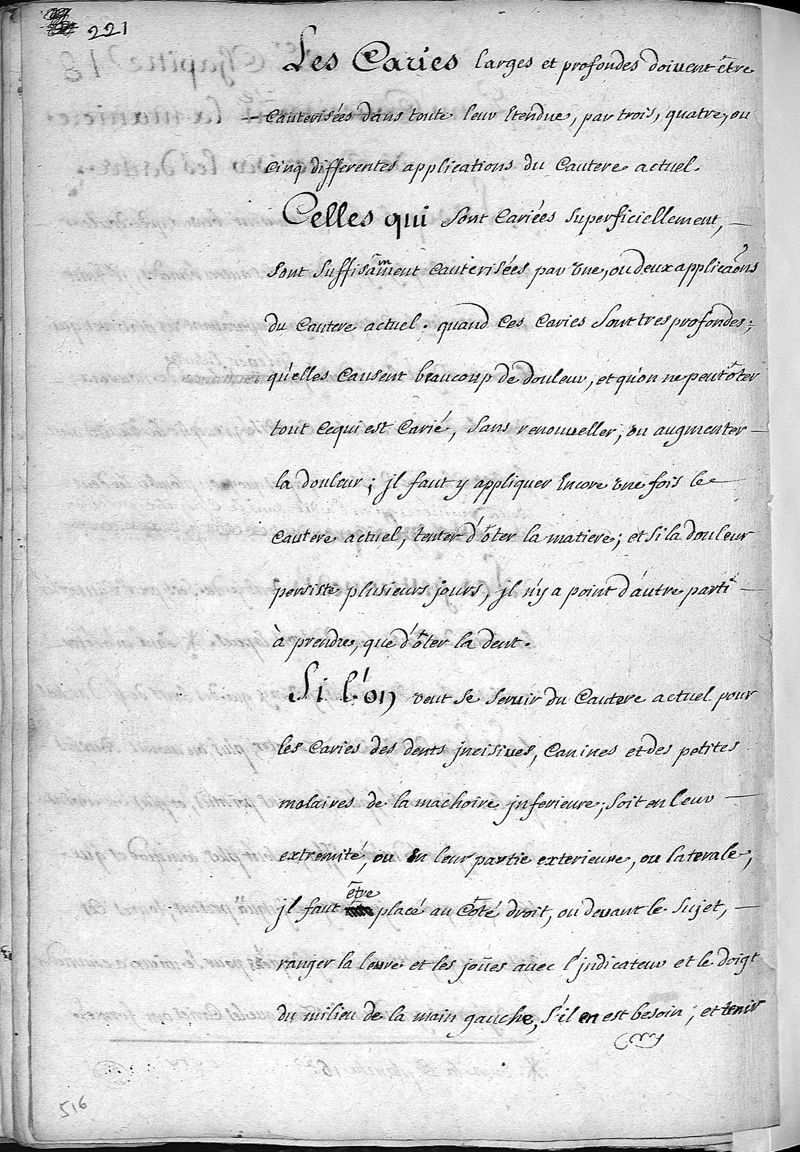 221
Les Caries larges et profondes doivent être
cauterisées dans toute leur Etendue, par trois, quatre, ou
cinq differentes applications du Cautere actuel.
Celles qui sont Cariées superficiellement,
sont suffisam̃ent cauterisées par une, ou deux applicaõns
du Cautere actuel. quand ces Caries sont tres profondes;
qu'elles causent beaucoup de douleur, et qu'on ne peut ôter
tout ce qui est Carié, sans renouveller, ou augmenter
la douleur; jl faut y appliquer Encore une fois le
cautere actuel, tenter d'ôter la matiere; et si la douleur
persiste plusieurs jours, jl n'y a point d'autre parti
à prendre, que d'ôter la dent.
Si l'on veut se servir du Cautere actuel pour
les Caries des dents jncisives, Canines et des petites
molaires de la machoire jnferieure; soit en leur
extremité, ou En leur partie exterieure, ou laterale;
être
jl faut placé au Côté droit, ou devant le sujet,
ranger la levre et les joües avec l'jndicateur et le doigt
du milieu de la main gauche, s'il en est besoin; et tenir
516